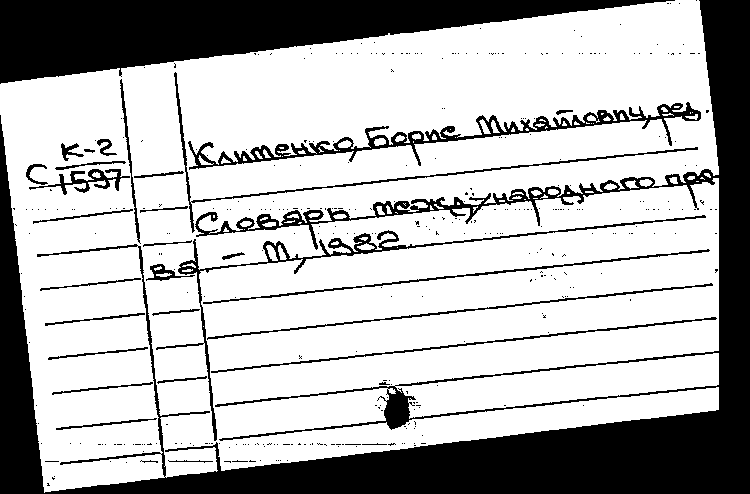 С К-2
1597
Клименко, Борис Михайлович, ред.
Словарь международного пра-
ва. – М., 1982.